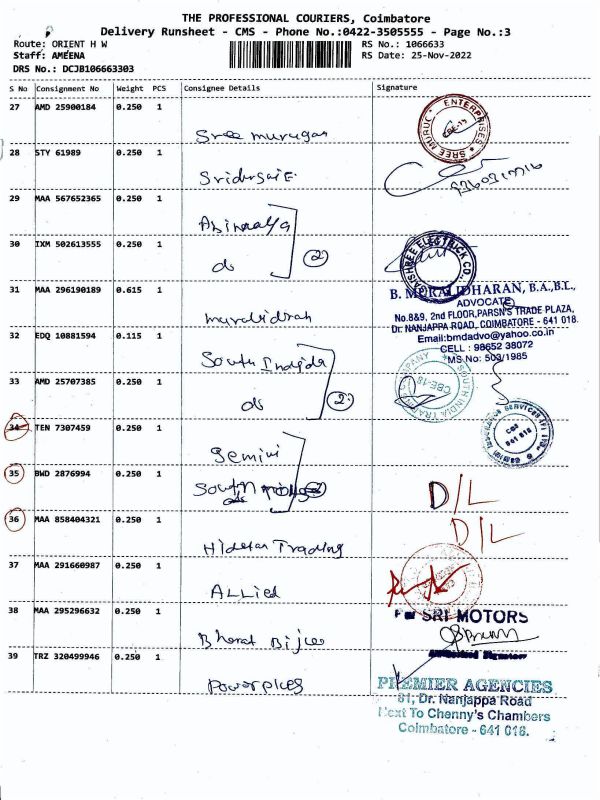 THE PROFESSIONAL COURIERS, Coimbatore
Delivery Runsheet - CMS - Phone No.:0422-3505555 - Page No.:3
Route: ORIENT H W
RS No.: 1066633
Staff: AMEENA
RS Date: 25-Nov-2022
DRS No.: DCJB106663303
S No Consignment No Weight PCS Consignee Details Signature
27 AMD 25900184 0.250 1
Sree murugan
SREE MURUG ENTERPRISES CBE-18
28 STY 61989 0.250 1
Sridursai E
29 MAA 567652365 0.250 1
Abinaya
30 IXM 502613555 0.250 1
do 2
JAISHREE ELECTRICK CO.
31 MAA 296190189 0.615 1
muralidran
B. MURALIDHARAN, B.A.,B.L.,
ADVOCATE
No.8&9, 2nd FLOOR,PARSN'S TRADE PLAZA,
Dr. NANJAPPA ROAD, COIMBATORE - 641 018.
Email:bmdadvo@yahoo.co.in
CELL : 98652 38072
MS No: 503/1985
32 EDQ 10881594 0.115 1
South Indida
33 AMD 25707385 0.250 1
do 2
SOUTH INDIA TRADING COMPANY CBE-18
34 TEN 7307459 0.250 1
Gemini
35 BWD 2876994 0.250 1
South
D/L
36 MAA 858404321 0.250 1
D/L
Trading
37 MAA 291660987 0.250 1
ALLied
38 MAA 295296632 0.250 1
Bharat Bijlee
For SRI MOTORS
Authorised Signatory
39 TRZ 320499946 0.250 1
PREMIER AGENCIES
81, Dr. Nanjappa Road
Next To Chenny's Chambers
Coimbatore - 641 018.